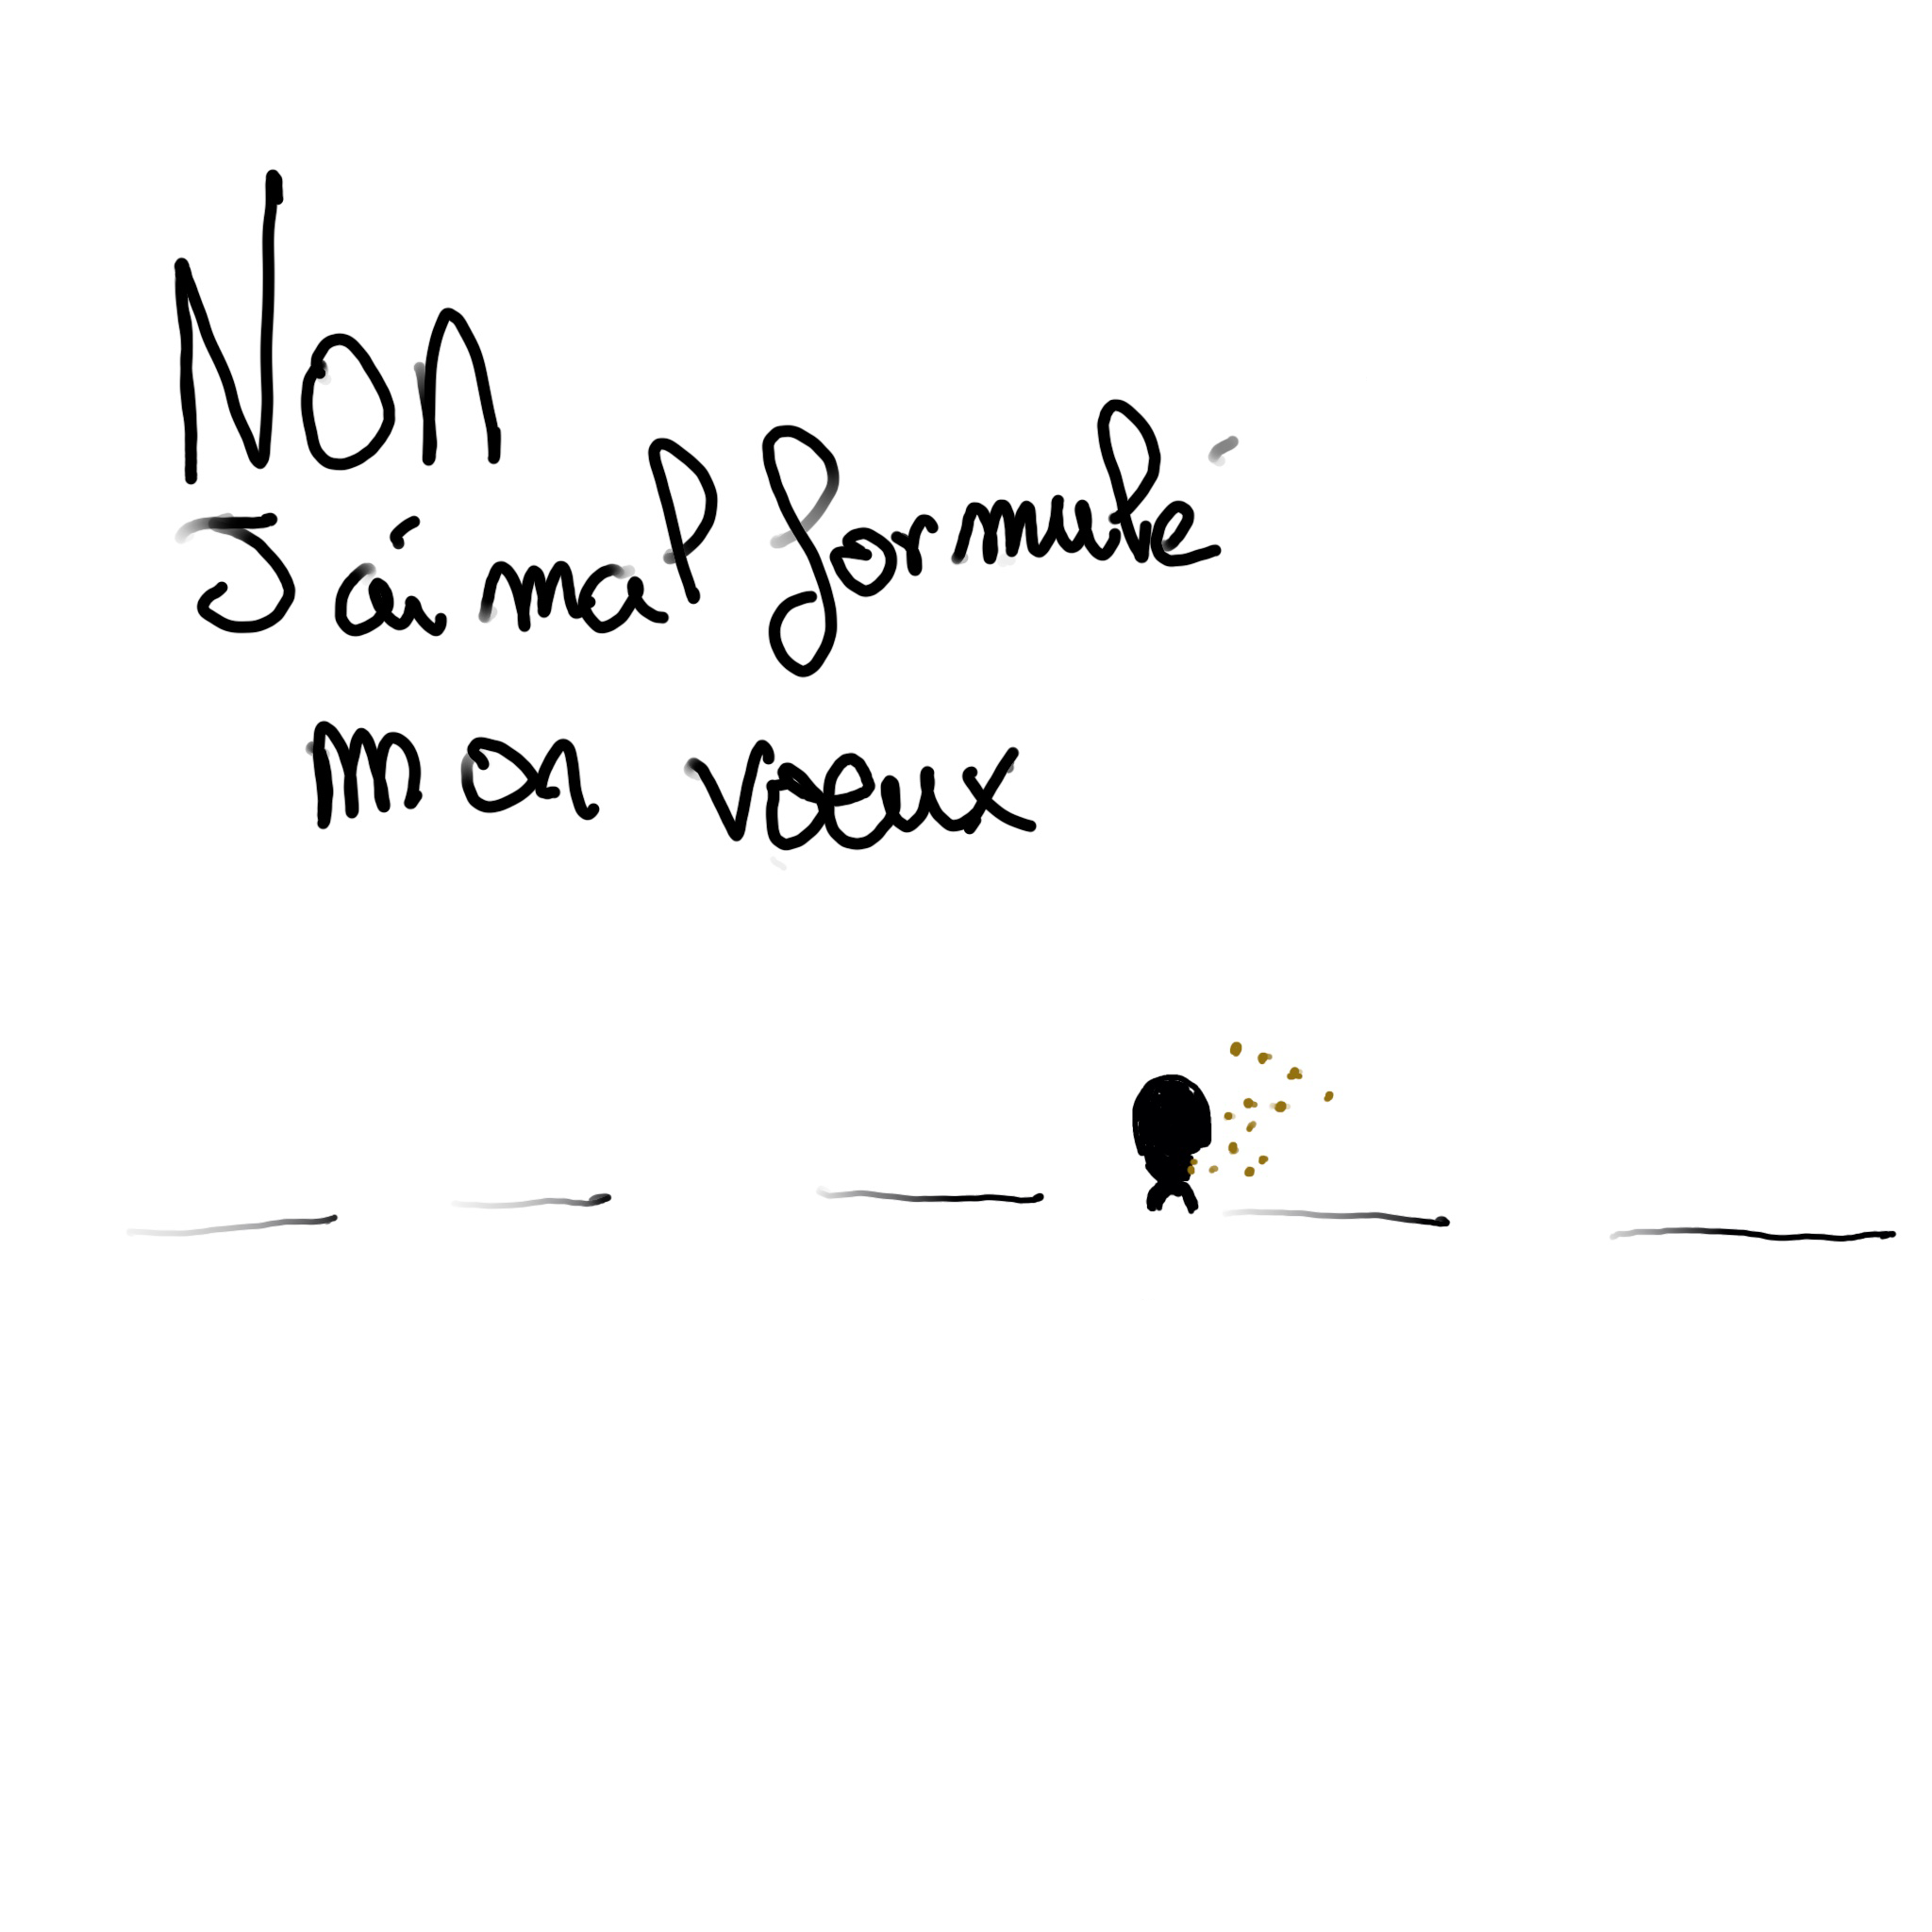 Non
J'ai mal formulé
mon vœux